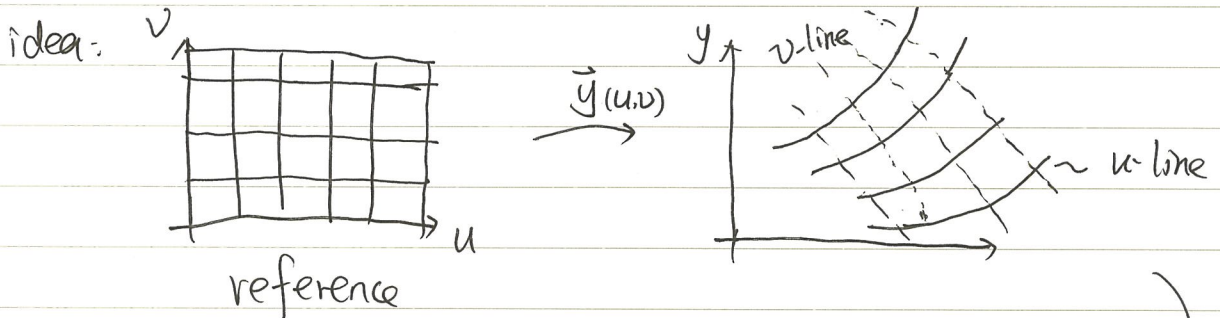 idea: v
u
reference
→
y(u,v)
y
v-line
u-line